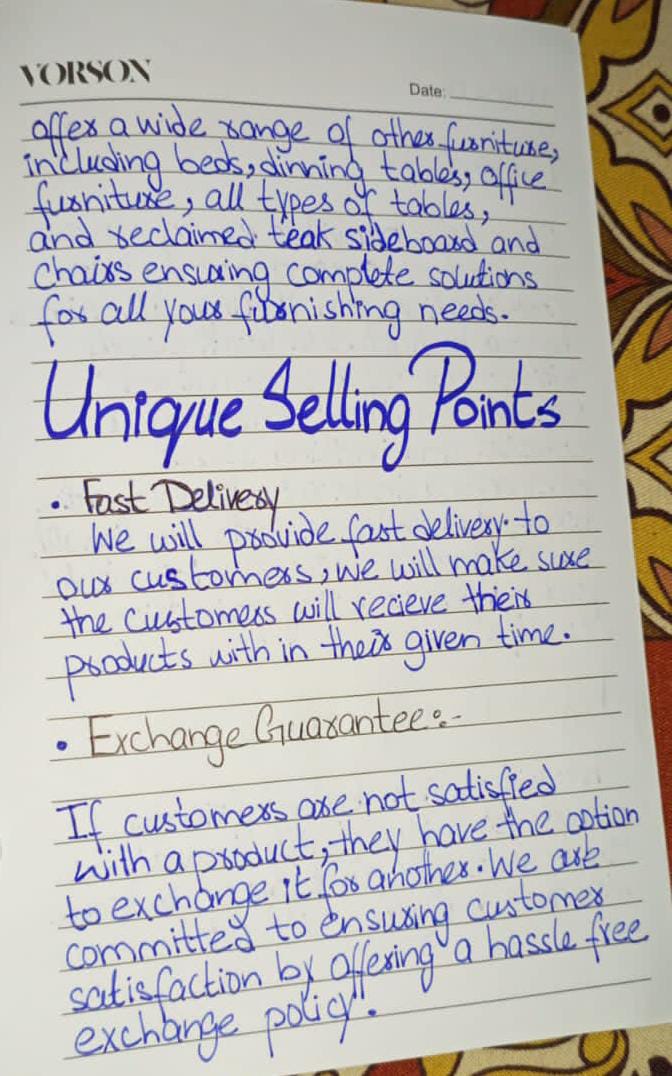 VORSON
Date:
offer a wide range of other furniture,
including beds, dinning tables, office
furniture, all types of tables,
and reclaimed teak sideboard and
Chairs ensuring complete solutions
for all your furnishing needs.
Unique Selling Points
• Fast Delivery
We will provide fast delivery to
our customers, we will make sure
the customers will recieve their
products with in their given time.
• Exchange Guarantee:-
If customers are not satisfied
with a product, they have the option
to exchange it for another. We are
committed to ensuring customer
satisfaction by offering a hassle free
exchange policy".